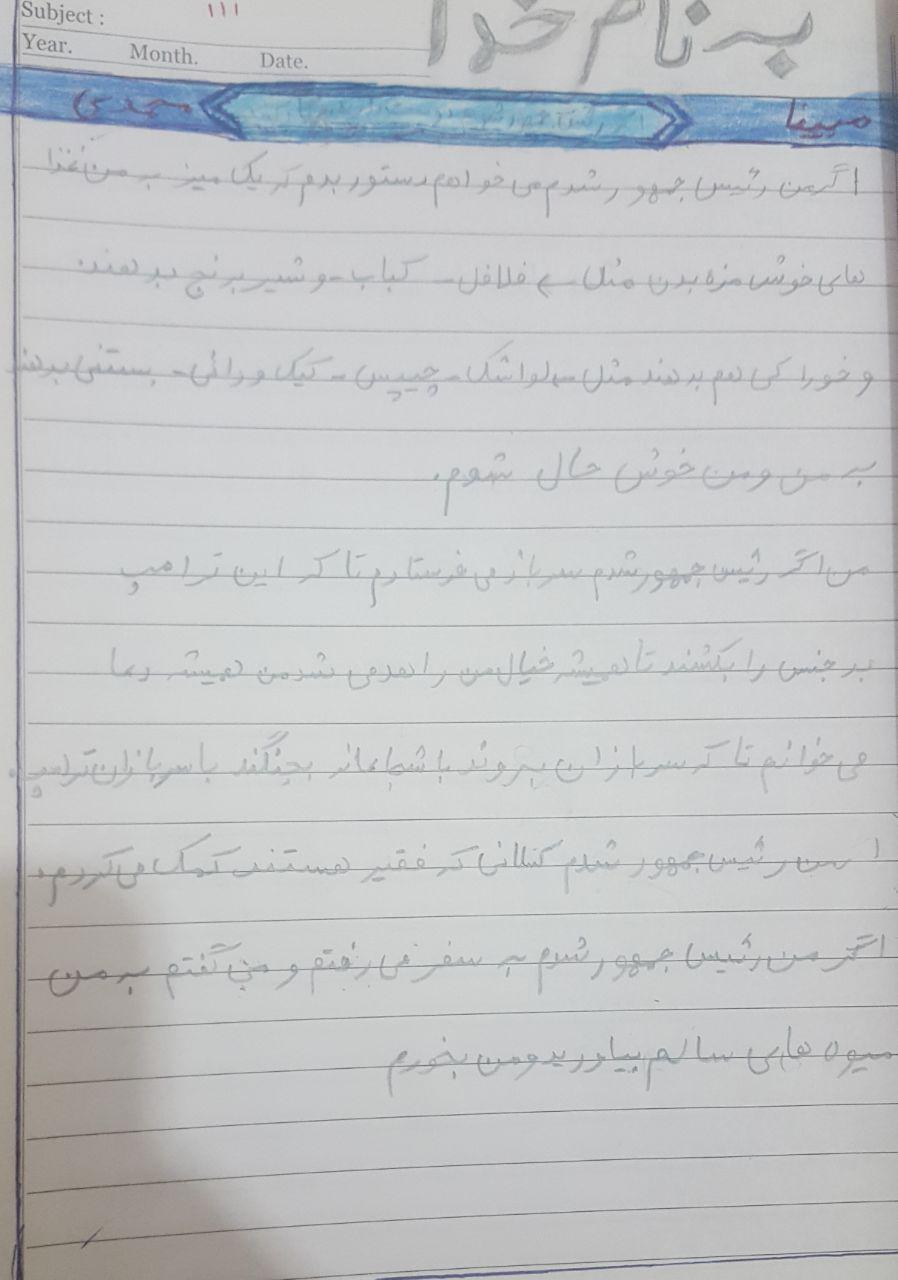 Subject :
۱۱۱
به نام خدا
Year. Month. Date.
مبینا
مجدی
اگر من رئیس جمهور شدم می خواهم دستور بدم که یک میز به من غذا
های خوش مزه بدن مثل فلافل - کباب - و شیر برنج بدهند
و خوراکی هم بدهند مثل - لواشک - چیپس - کیک ورانی - بستنی بدهند
به من و من خوش حال شوم.
من اگر رئیس جمهور شدم سرباز می فرستادم تا که این ترامپ
بد جنس را بکشند تا همیشه خیال من را می شد من همیشه دعا
می خوانم تا که سربازان بروند با شجاعانه بجنگند با سربازان ترامپ.
من رئیس جمهور شدم کسانی که فقیر هستند کمک می کردم.
اگر من رئیس جمهور شدم به سفر می رفتم و می گفتم به من
میوه هایی سالم بیاورید و من بخورم